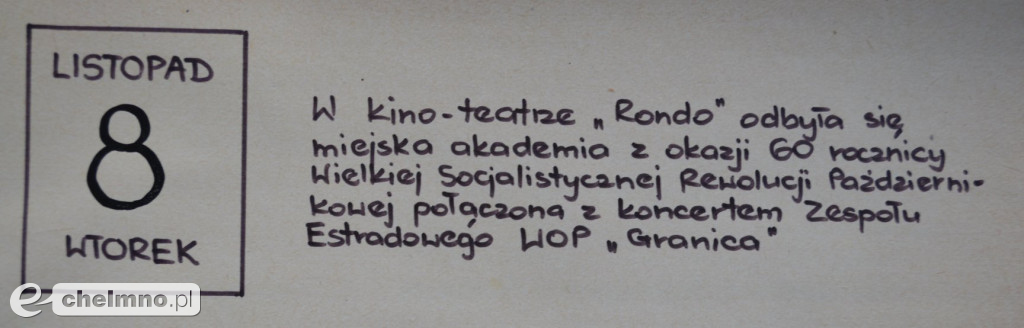 LISTOPAD
8
WTOREK
W kino-teatrze „Rondo" odbyła się
miejska akademia z okazji 60 rocznicy
Wielkiej Socjalistycznej Rewolucji Październi-
kowej połączona z koncertem Zespołu
Estradowego WOP „Granica"
e-chelmno.pl